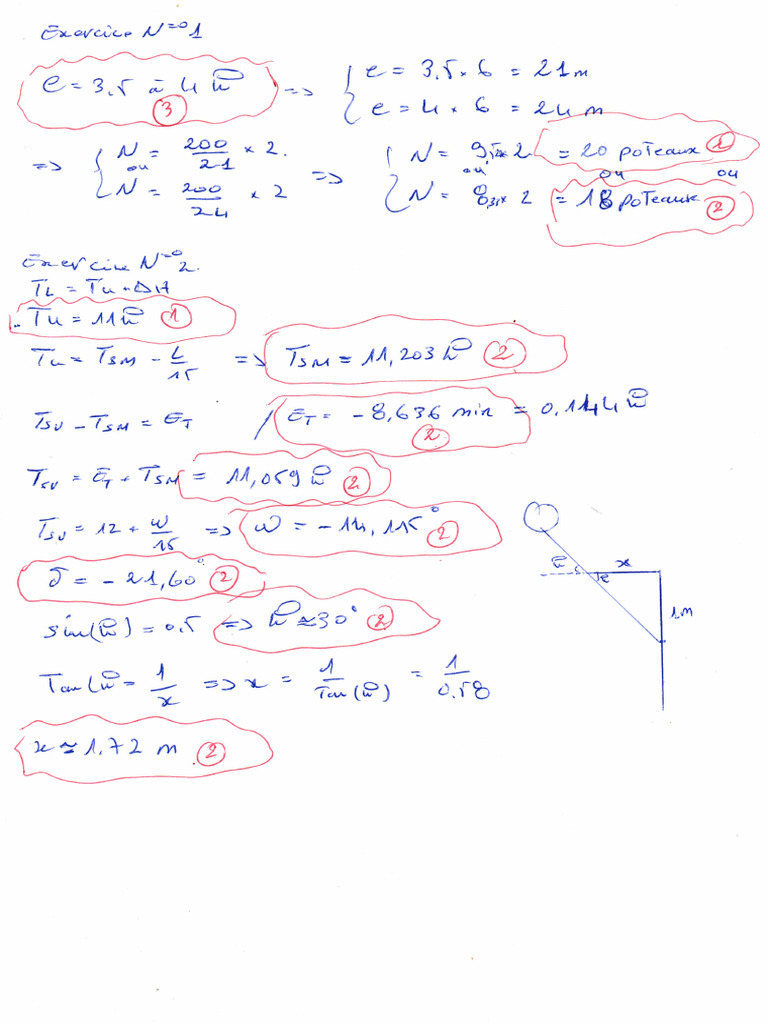 Exercice N=°1
e = 3,5 à 4 h ③ => { e = 3,5 × 6 = 21 m
e = 4 × 6 = 24 m
=> { N = 200/21 × 2. => { N = 9,52 × 2 = 20 poteaux ①
ou ou ou ou
N = 200/24 × 2 N = 8,3 × 2 = 18 poteaux ②
Exercice N=°2.
TL = Tu + ΔH
Tu = 11h ①
Tu = TSM - L/15 => TSM = 11,203 h ②
TSV - TSM = ET / ET = -8,636 min = 0.144 h ②
TSV = ET + TSM = 11,059 h ②
TSV = 12 + ω/15 => ω = -14,115° ②
δ = -21,60° ②
sin(h) = 0.5 => h ≈ 30° ②
Tan(h = 1/x => x = 1/Tan(h) = 1/0.58
x ≈ 1.72 m ②
h x
1m